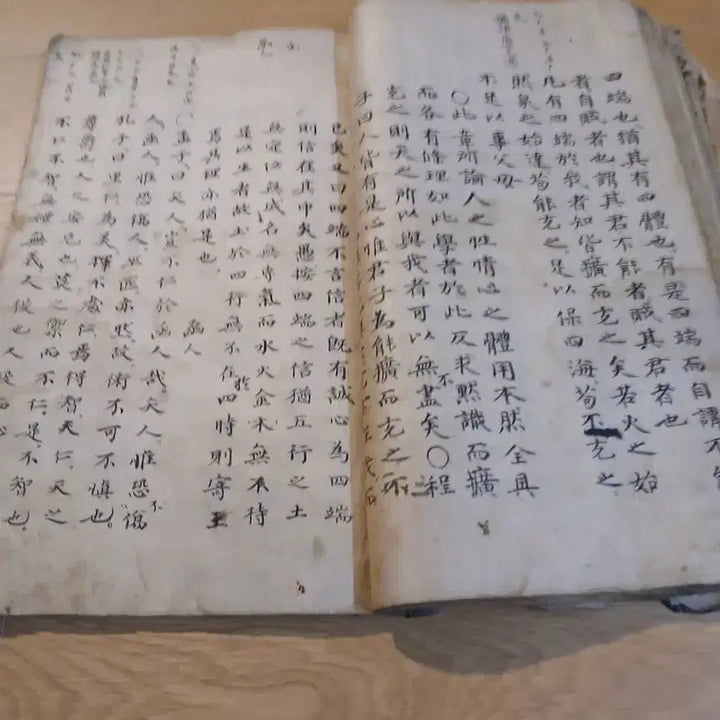 四端也猶其有四體也有是四端而自謂不
者自賊者也謂其君不能者賊其君者也
凡有四端於我者知皆擴而充之矣若火之始
然泉之始達苟能充之足以保四海苟不充之
不足以事父母
○此章所論人之性情心之體用本然全具
而各有條理如此學者於此反求默識而擴
充之則天之所以與我者可以無不盡矣○程
子曰人皆有是心惟君子為能擴而充之不
已矣又曰四端不言信者既有誠心為四端
則信在其中矣愚按四端之信猶五行之土
無定位無成名無專氣而水火金木無不待
是以生者故土於四行無不在於四時則寄王
焉其理亦猶是也
函人
○孟子曰矢人豈不仁於函人哉矢人惟恐不傷
人函人惟恐傷人巫匠亦然故術不可不慎也
孔子曰里仁為美擇不處仁焉得智夫仁天之
尊爵也人之安宅也莫之禦而不仁是不智也
不仁不智無禮無義人役也人役而